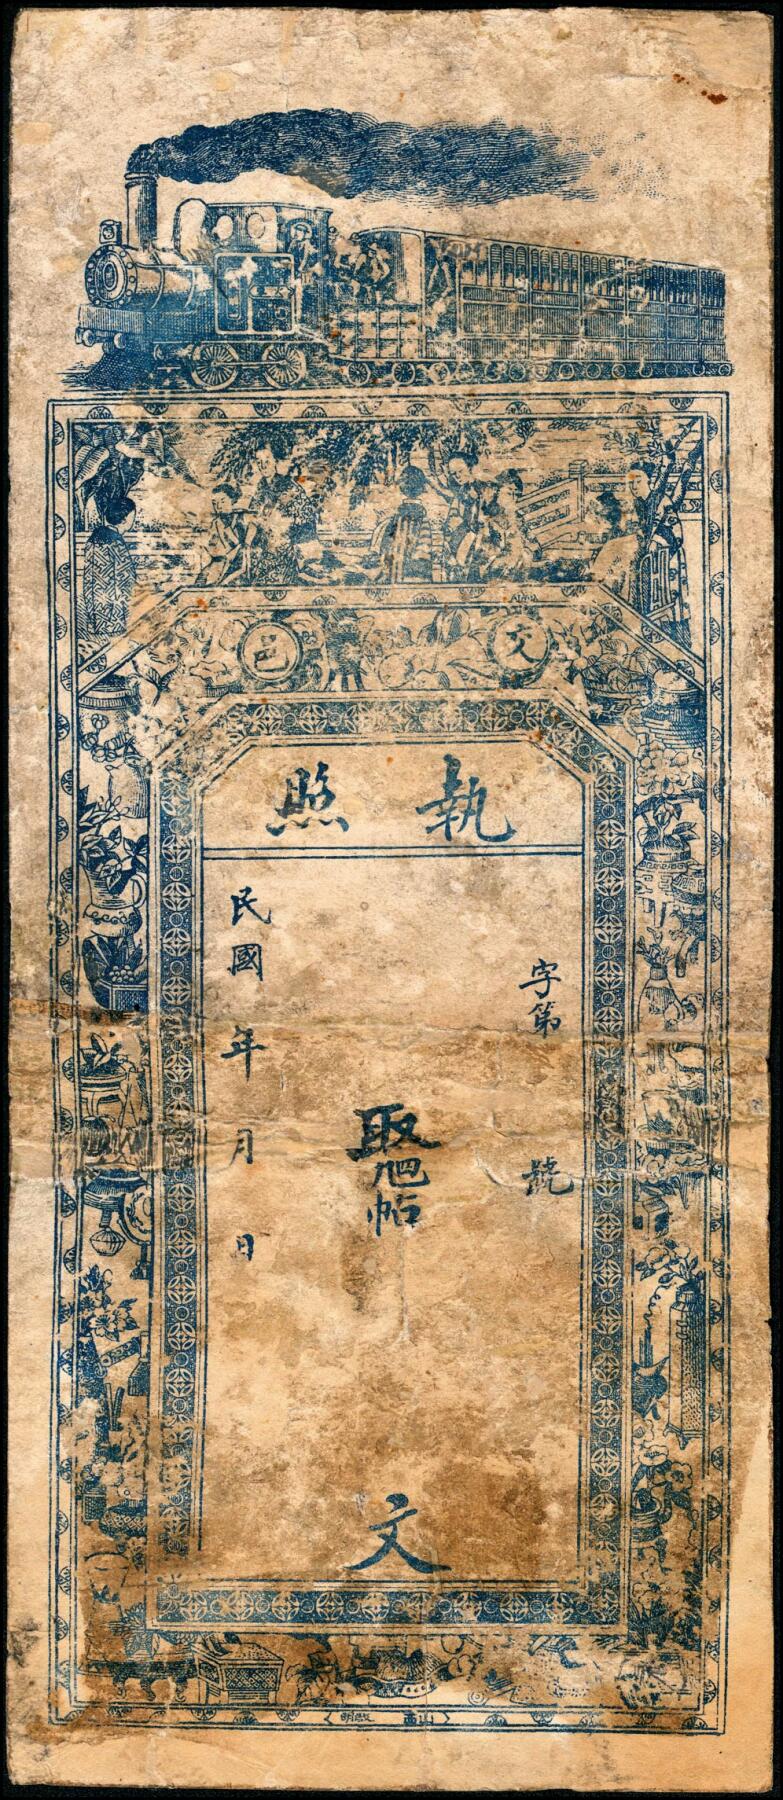 交邑
執照
字第 號
取
帖
文
民國 年 月 日
山西